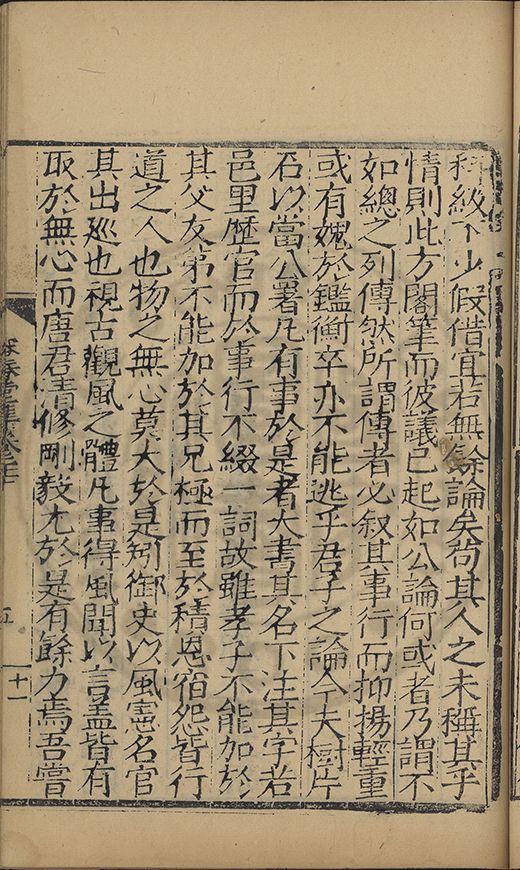 秤級不少假借宜若無餘論矣苟其人之未稱其乎
情則此方閣筆而彼議已起如公論何或者乃謂不
如總之列傳然所謂傳者必叙其事行而抑揚輕重
或有媿於鑑衡卒亦不能逃乎君子之論今夫樹片
石以當公署凡有事於是者大書其名下注其字若
邑里歷官而於事行不綴一詞故雖孝子不能加於
其父友弟不能加於其兄極而至於積恩宿怨皆行
道之人也物之無心莫大於是矧御史以風憲名官
其出廵也視古觀風之體凡事得風聞以言盖皆有
取於無心而唐君清修剛毅尤於是有餘力焉吾嘗
五
十一